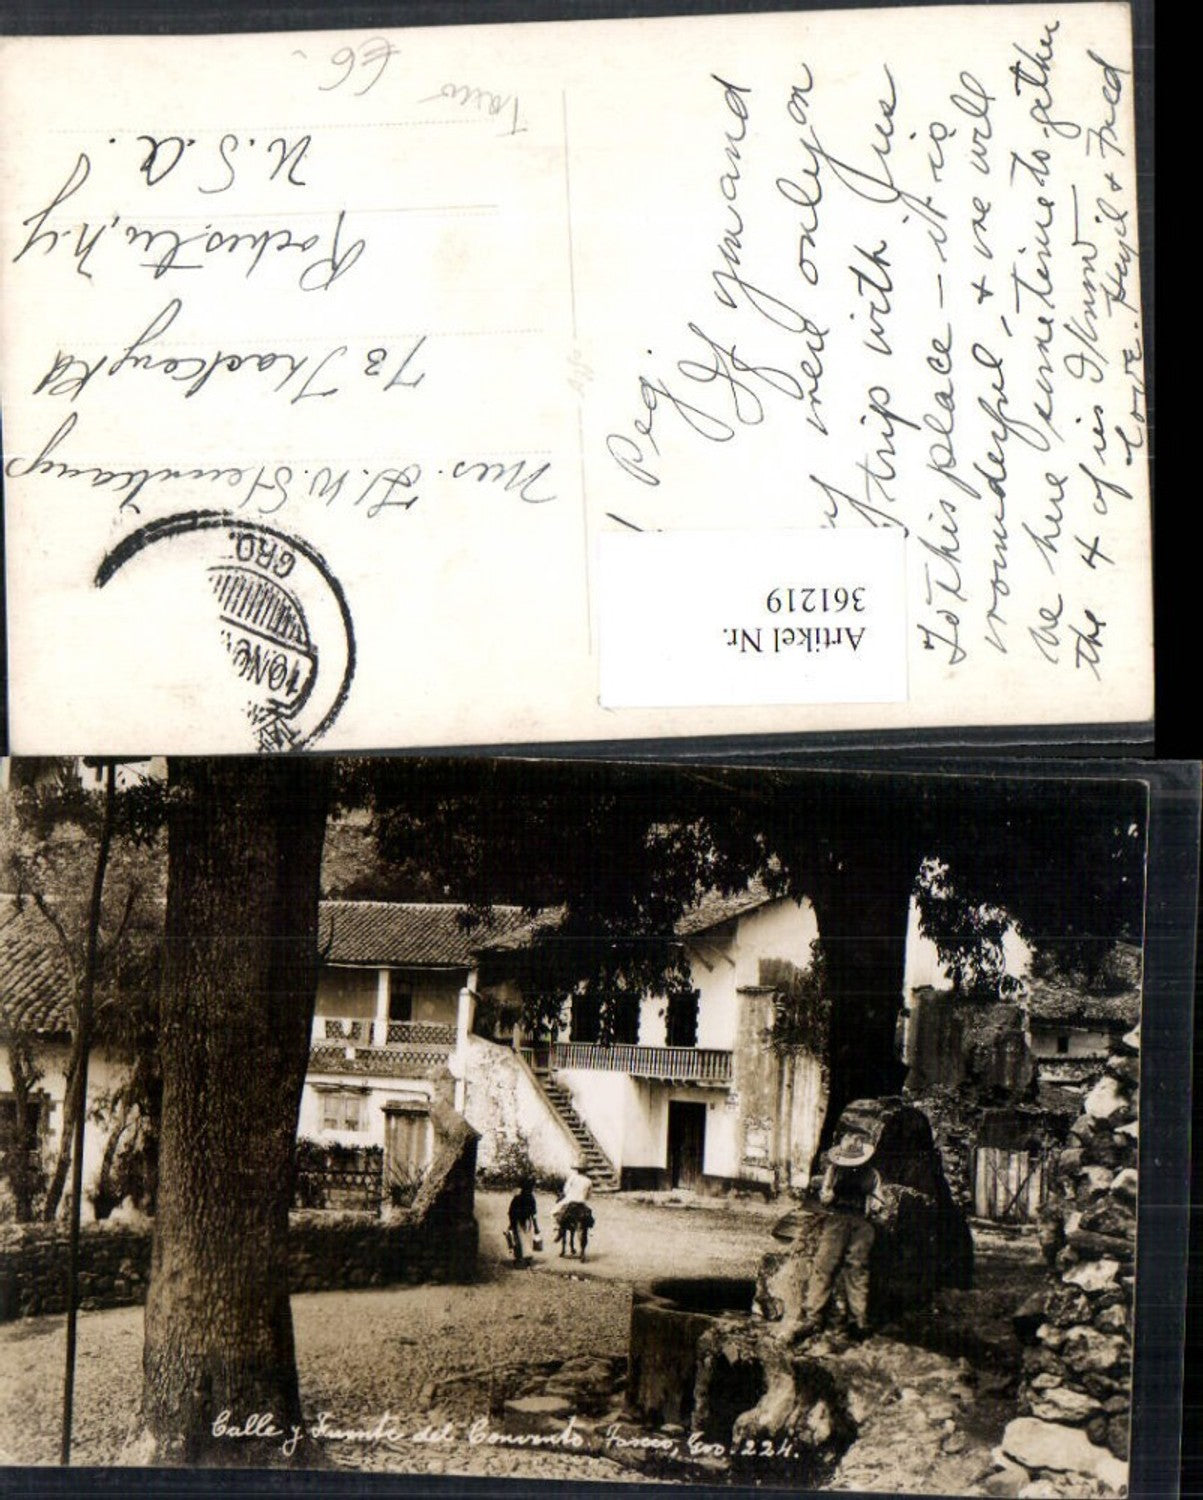 Peg.
If you and
were only on
trip with us
To this place – it is
wonderful, & we will
be here some time to gether
the 4 of us I know –
Love. & Fred
Artikel Nr.
361219
Mrs. H. W.
73 Rd
Rochester, N.Y
U.S.A.
Taxco
£6.-
GRO.
Calle y Fuente del Convento. Taxco, Gro. 224.